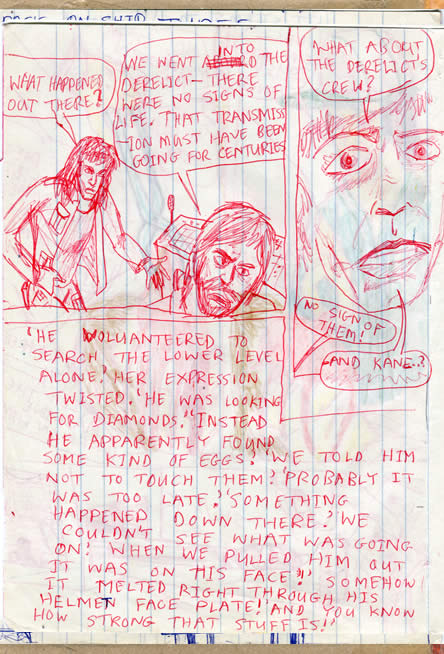 WHAT HAPPENED
OUT THERE?
WE WENT INTO THE
DERELICT— THERE
WERE NO SIGNS OF
LIFE. THAT TRANSMISS
-ION MUST HAVE BEEN
GOING FOR CENTURIES
WHAT ABOUT
THE DERELICT'S
CREW?
NO SIGN OF
THEM!
-AND KANE..?
'HE VOLUANTEERED TO
SEARCH THE LOWER LEVEL
ALONE.' HER EXPRESSION
TWISTED. 'HE WAS LOOKING
FOR DIAMONDS.' 'INSTEAD
HE APPARENTLY FOUND
SOME KIND OF EGGS.' 'WE TOLD HIM
NOT TO TOUCH THEM?' 'PROBABLY IT
WAS TOO LATE.' 'SOMETHING
HAPPENED DOWN THERE.' 'WE
COULDN'T SEE WHAT WAS GOING
ON! WHEN WE PULLED HIM OUT
IT WAS ON HIS FACE!' 'SOMEHOW
IT MELTED RIGHT THROUGH HIS
HELMENT FACE PLATE!' 'AND YOU KNOW
HOW STRONG THAT STUFF IS!'